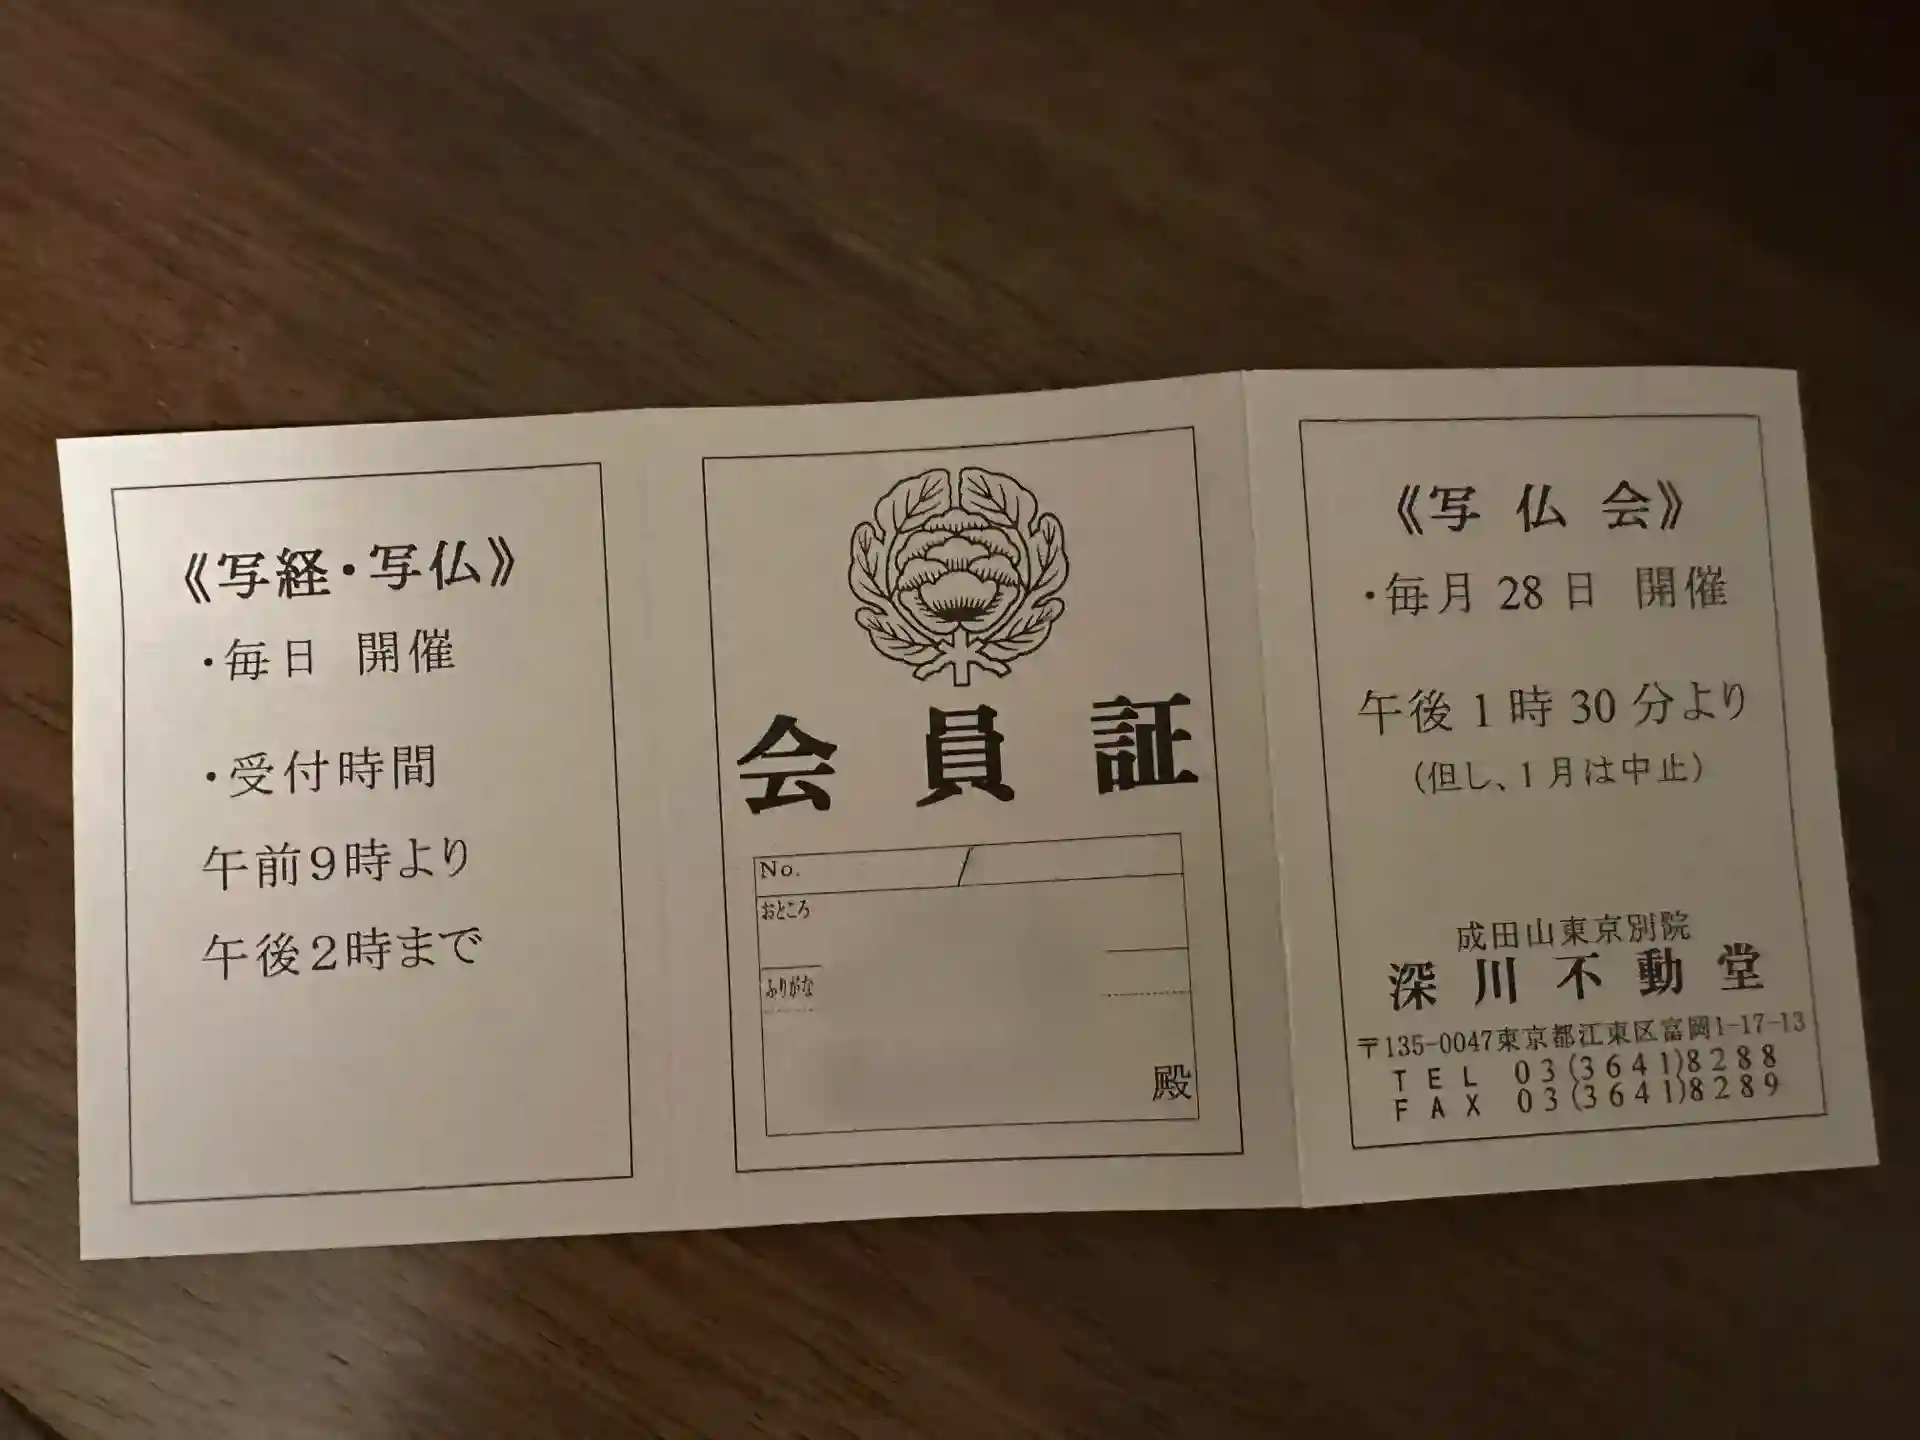 《写経・写仏》
・毎日 開催
・受付時間
午前9時より
午後2時まで
会員証
No. /
おところ
ふりがな
殿
《写仏会》
・毎月 28 日 開催
午後 1 時 30 分より
(但し、1 月は中止)
成田山東京別院
深川不動堂
〒135-0047東京都江東区富岡1-17-13
TEL 03(3641)8288
FAX 03(3641)8289